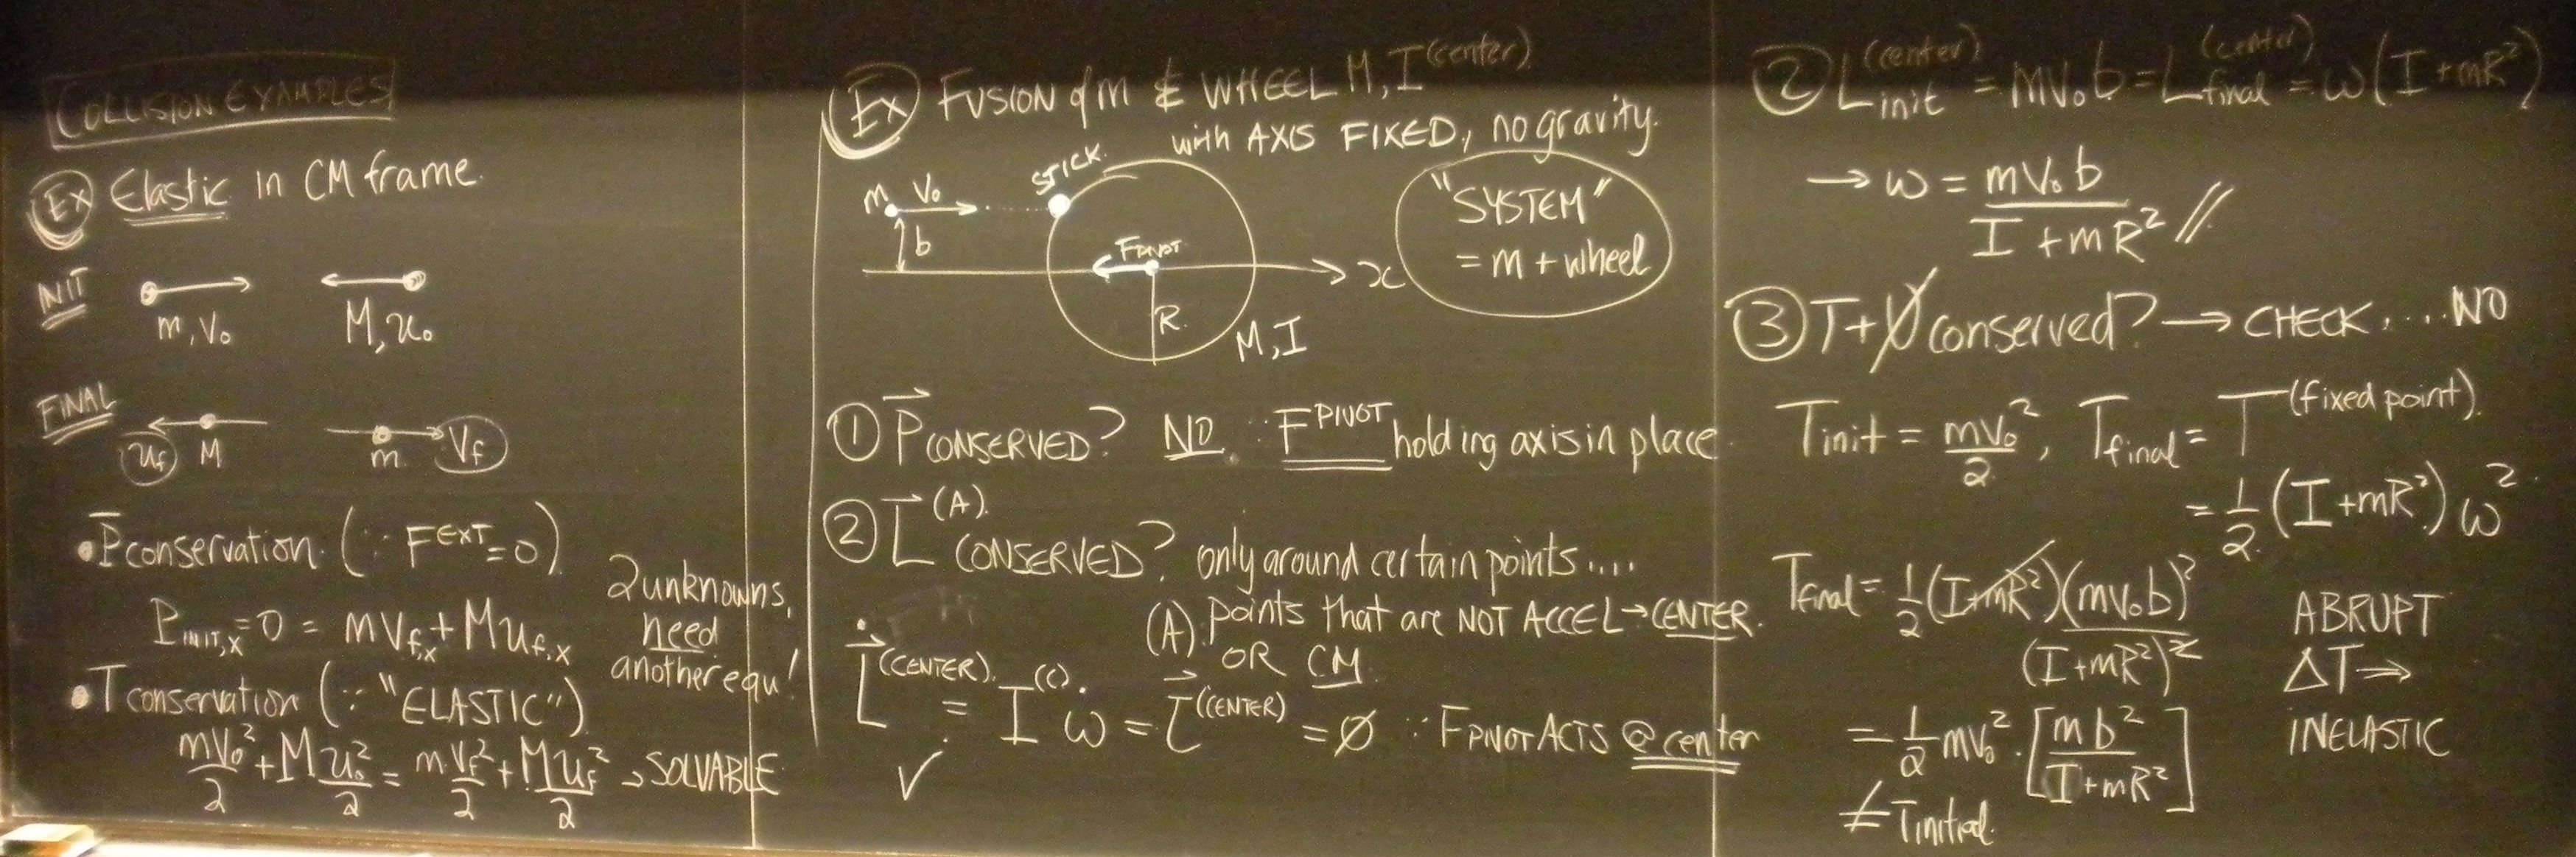 COLLISION EXAMPLES
Ex Elastic in CM frame.
INIT
m, V₀ M, u₀
FINAL
u_f M m V_f
• P⃗ conservation (∵ F^EXT = 0)
P_INIT,x = 0 = mV_f,x + Mu_f,x
2 unknowns,
need
another equ!
• T conservation (∵ "ELASTIC")
mV₀²/2 + Mu₀²/2 = mV_f²/2 + Mu_f²/2 → SOLVABLE
Ex FUSION of m & WHEEL M, I^(center)
with AXIS FIXED, no gravity.
STICK
m V₀
b
F_PIVOT
x
R
M, I
"SYSTEM"
= m + wheel
① P⃗ CONSERVED? NO ∵ F^PIVOT holding axis in place
② L⃗^(A) CONSERVED? only around certain points....
(A) points that are NOT ACCEL → CENTER
OR CM
L⃗̇^(CENTER) = I^(C) ω̇ = τ⃗^(CENTER) = ∅ ∵ F_PIVOT ACTS @ center
✓
② L_init^(center) = mV₀b = L_final^(center) = ω(I + mR²)
→ ω = mV₀b / (I + mR²) //
③ T + V̸ conserved? → CHECK .... NO
T_init = mV₀²/2, T_final = T^(fixed point)
= 1/2 (I + mR²) ω²
T_final = 1/2 (I + mR²)(mV₀b)² / (I + mR²)²
= 1/2 mV₀² · [mb² / (I + mR²)]
≠ T_initial
ABRUPT
ΔT ⇒
INELASTIC